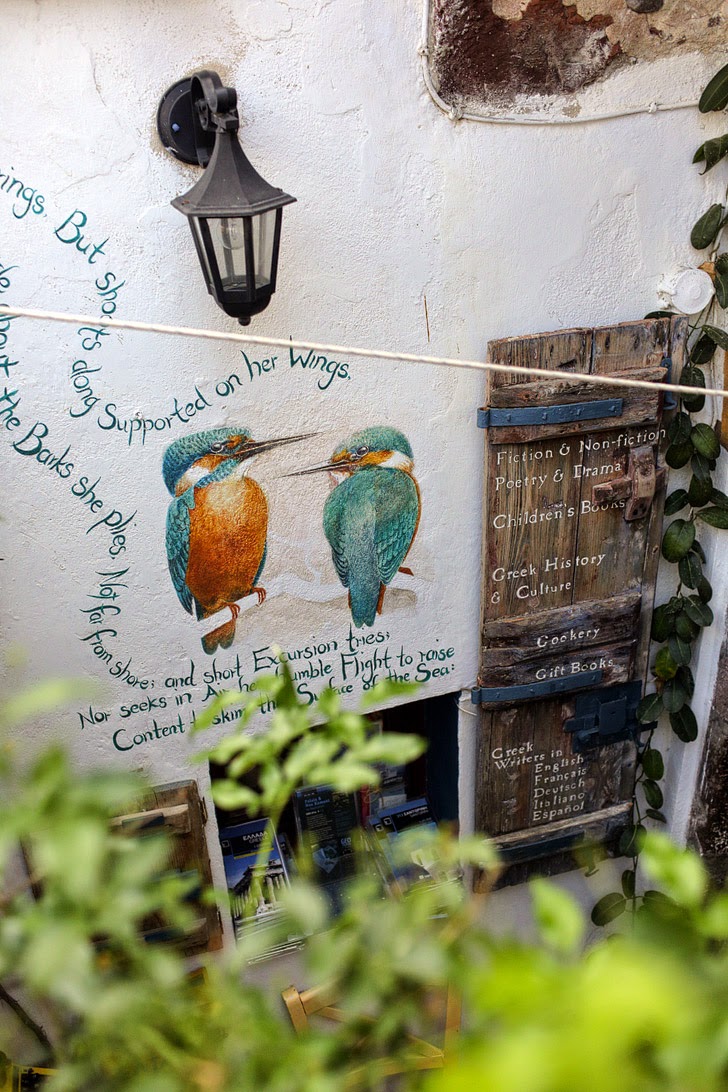 But shoots along Supported on her Wings.
about
the Barks she plies, Not far from shore; and short Excursion tries;
Nor seeks in Air her humble Flight to raise
Content to skim the Surface of the Sea:
Fiction & Non-fiction
Poetry & Drama
Children's Books
Greek History
& Culture
Cookery
Gift Books
Greek
Writers in
English
Français
Deutsch
Italiano
Español